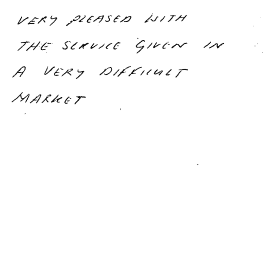 VERY PLEASED WITH
THE SERVICE GIVEN IN
A VERY DIFFICULT
MARKET